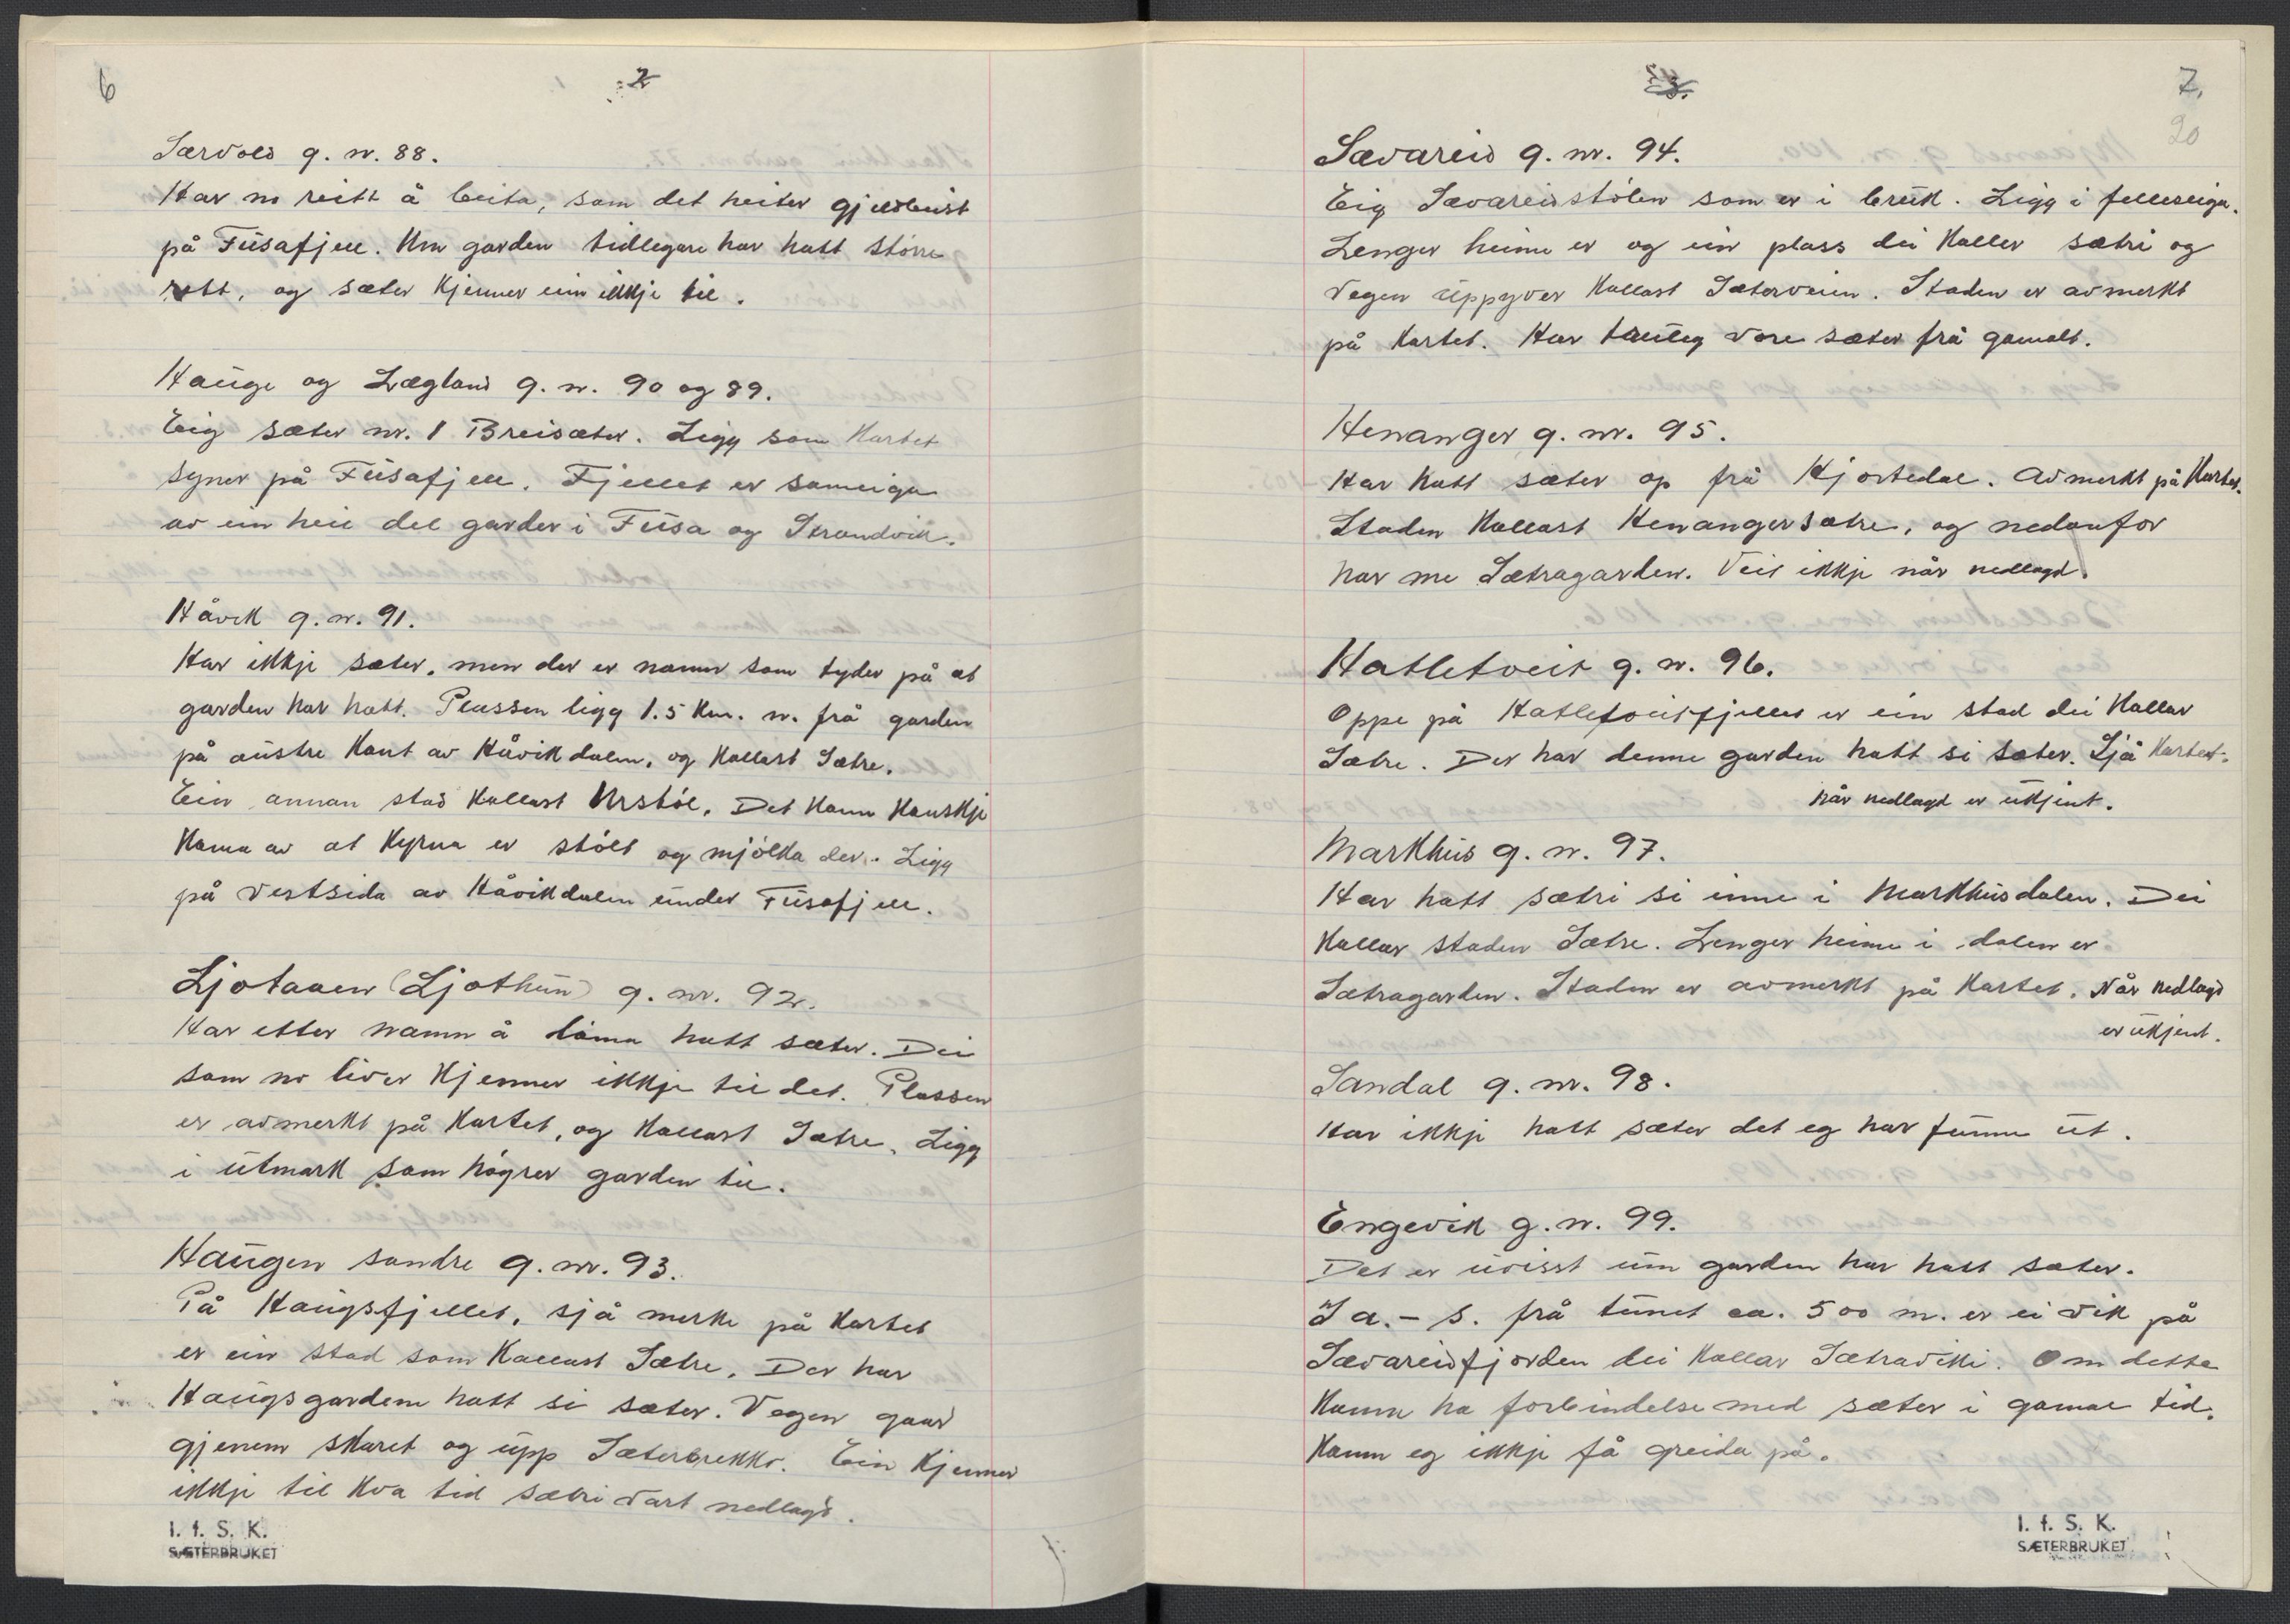 6
2
Særvold g. nr. 88.
Har no reitt å beita, som det heiter gjeldbeist
på Fusafjell. Um garden tidlegare har hatt större
rett, og sæter kjenner ein ikkje til.
Hauge og Lægland g. nr. 90 og 89.
Eig sæter nr. 1 Breisæter. Ligg som kartet
syner på Fusafjell. Fjellet er sameiga
av ein heil del garder i Fusa og Strandvik.
Håvik g. nr. 91.
Har ikkje sæter, men der er namn som tyder på at
garden har hatt. Plassen ligg 1.5 km. n. frå garden
på austre kant av Håvikdalen, og kallast Sætre.
Ein annan stad kallast Urstöl. Det kann kanskje
koma av at kyrna er stölt og mjölka der. Ligg
på vestsida av Håvikdalen under Fusafjell.
Ljotaaen (Ljothun) g. nr. 92.
Har etter namn å döma hatt sæter. Dei
som no liver kjenner ikkje til det. Plassen
er avmerkt på kartet, og kallast Sætre. Ligg
i utmark som högrer garden til.
Haugen söndre g. nr. 93.
På Haugsfjellet, sjå merke på kartet
er ein stad som kallast Sætre. Der har
Haugsgardene hatt si sæter. Vegen gaar
gjenem skaret og upp Sæterbrekko. Ein kjenner
ikkje til kva tid sætri vart nedlagd.
I. f. S. K.
SÆTERBRUKET
7.
20
Sævareid g. nr. 94.
Eig Sævareidstölen som er i bruk. Ligg i felleseiga.
Lenger heime er og ein plass dei kaller sætri og
vegen uppyver kallast Sæterveien. Staden er avmerkt
på kartet. Har truleg vore sæter frå gamalt.
Henanger g. nr. 95.
Har hatt sæter op frå Hjortedal. Avmerkt på kartet.
Staden kallast Henangersætre, og nedanfor
har me Sætragarden. Veit ikkje når nedlagd.
Hatletveit g. nr. 96.
Oppe på Hatletveitfjellet er ein stad dei kallar
Sætre. Der har denne garden hatt si sæter. Sjå kartet.
når nedlagd er ukjent.
Markhus g. nr. 97.
Har hatt sætri si inne i Markhusdalen. Dei
kallar staden Sætre. Lenger heime i dalen er
Sætragarden. Staden er avmerkt på kartet. Når nedlagd
er ukjent.
Sandal g. nr. 98.
Har ikkje hatt sæter det eg har funne ut.
Engevik g. nr. 99.
Det er uvisst um garden har hatt sæter.
I a.- s. frå tunet ca. 500 m. er ei vik på
Sævareidfjorden dei kallar Sætraviki. Om dette
kann ha forbindelse med sæter i gamal tid,
kann eg ikkje få greida på.
I. f. S. K.
SÆTERBRUKET